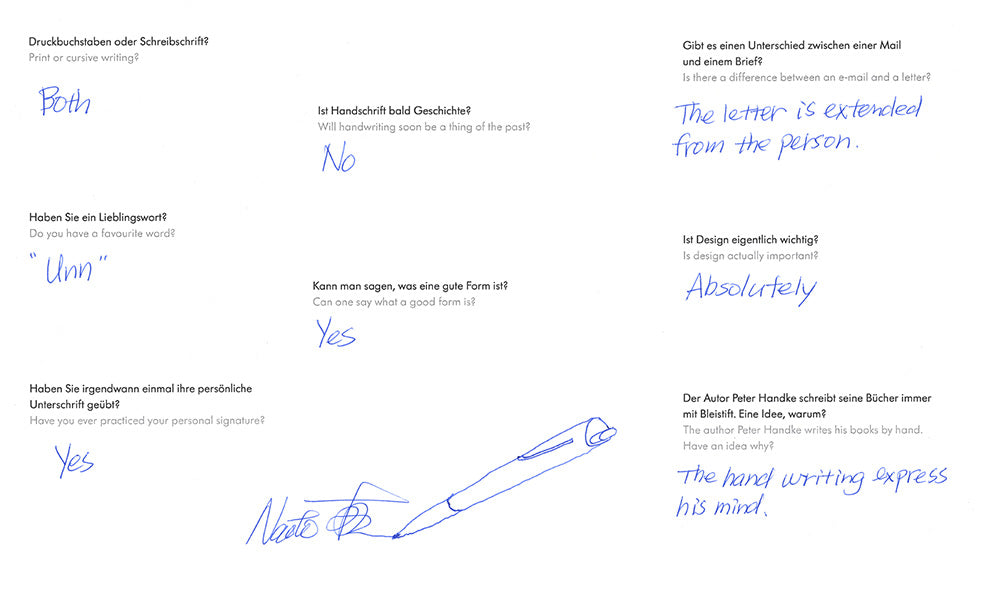 Druckbuchstaben oder Schreibschrift?
Print or cursive writing?
Both
Haben Sie ein Lieblingswort?
Do you have a favourite word?
"Unn"
Haben Sie irgendwann einmal ihre persönliche
Unterschrift geübt?
Have you ever practiced your personal signature?
Yes
Ist Handschrift bald Geschichte?
Will handwriting soon be a thing of the past?
No
Kann man sagen, was eine gute Form ist?
Can one say what a good form is?
Yes
Naoto
Gibt es einen Unterschied zwischen einer Mail
und einem Brief?
Is there a difference between an e-mail and a letter?
The letter is extended
from the person.
Ist Design eigentlich wichtig?
Is design actually important?
Absolutely
Der Autor Peter Handke schreibt seine Bücher immer
mit Bleistift. Eine Idee, warum?
The author Peter Handke writes his books by hand.
Have an idea why?
The hand writing express
his mind.